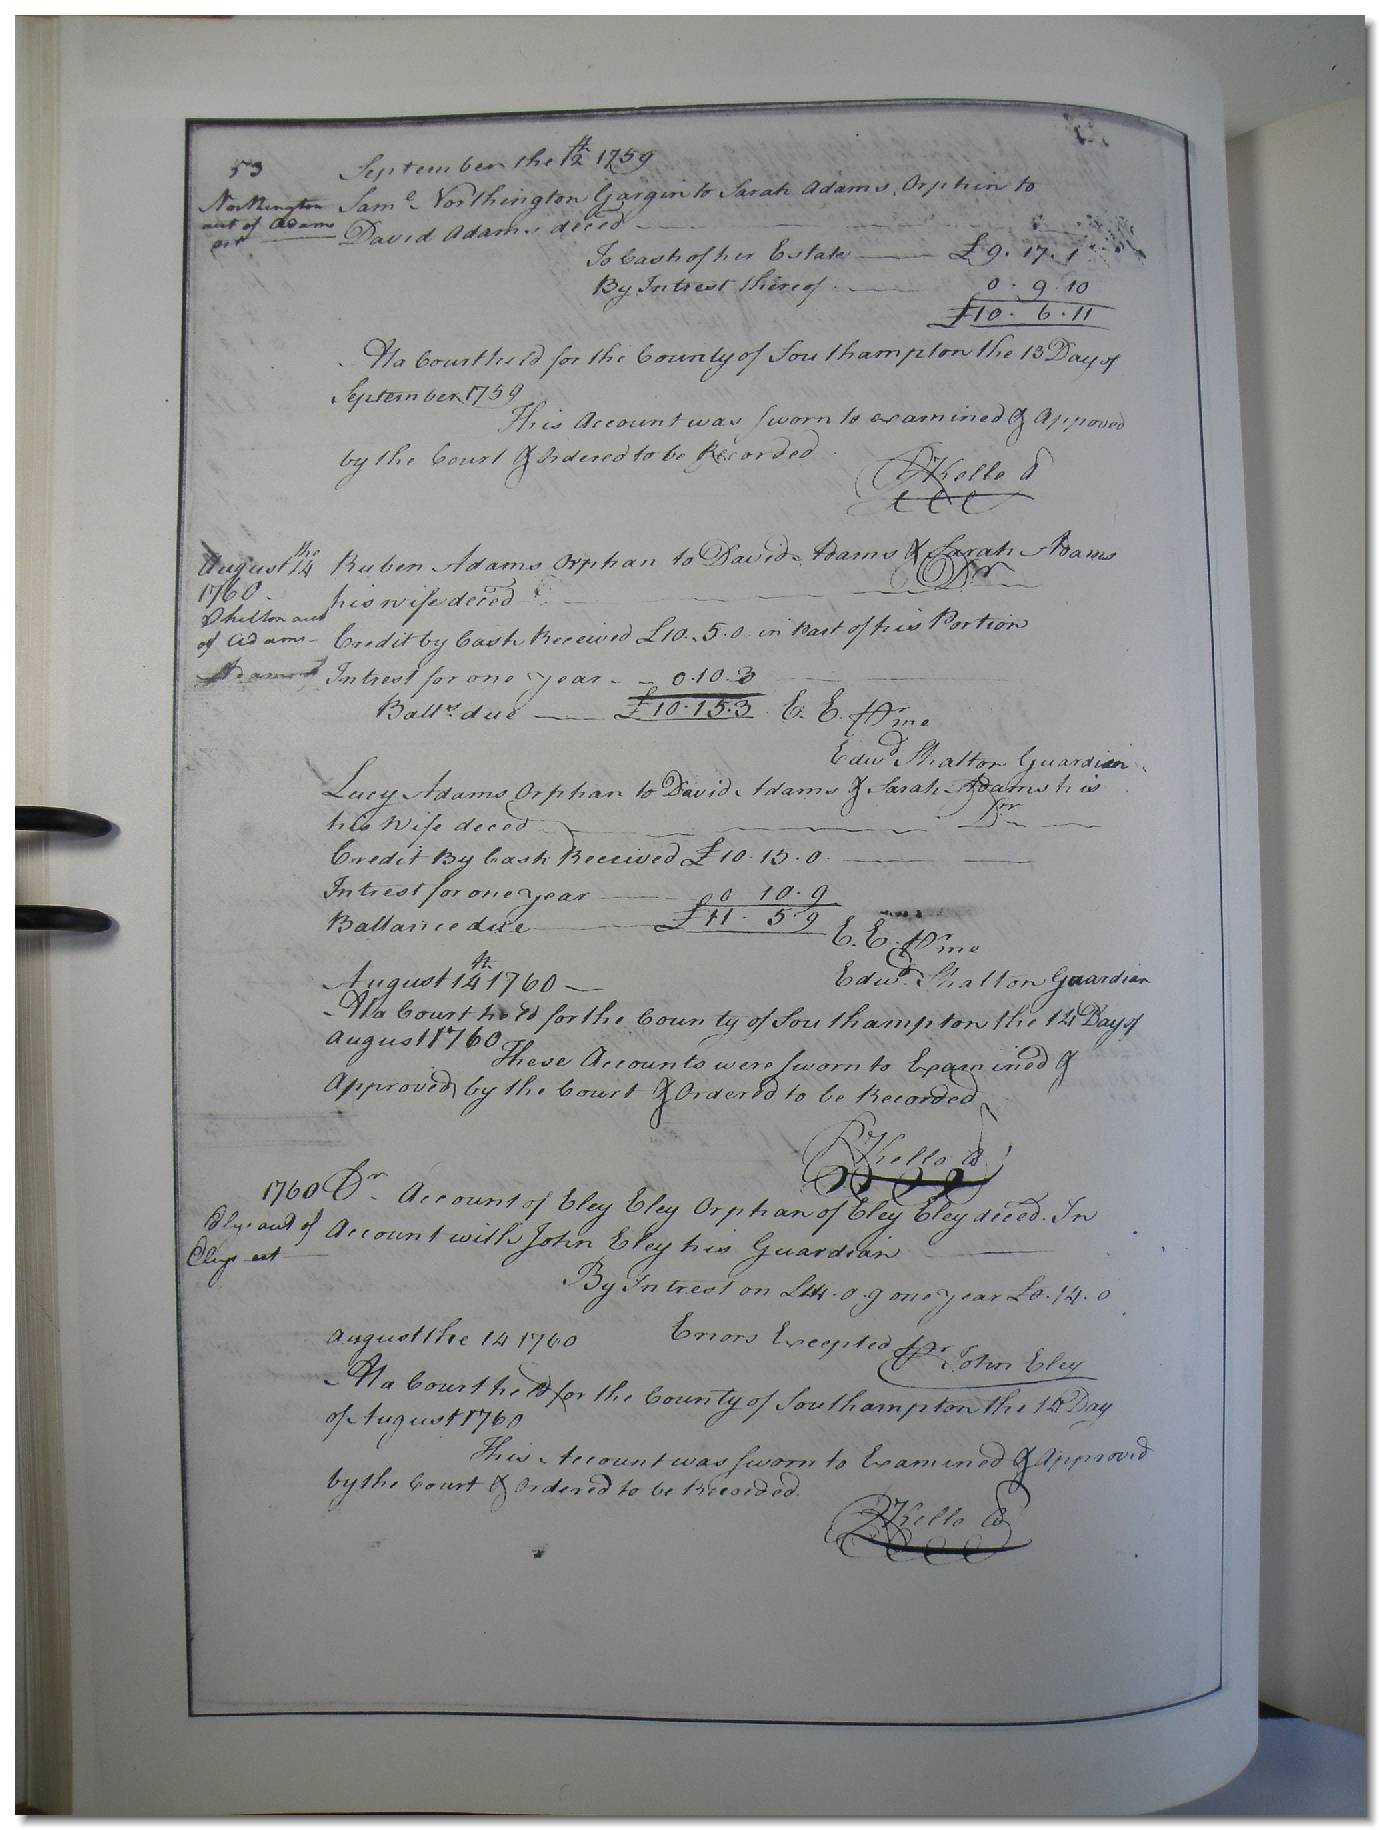 53
September the 12th 1759
Northington
acct of Adams
est
Saml Northington Gargin to Sarah Adams Orphin to
David Adams deced
To Cash of her Estate £9. 17. 1
By Intrest thereof 0. 9. 10
£10. 6. 11
At a Court held for the County of Southampton the 13 Day of
September 1759
This Account was sworn to examined & Approved
by the Court & Ordered to be Recorded
R Kello Cl
August the 14
1760
Shelton acct
of Adams
Ruben Adams Orphan to David Adams & Sarah Adams
his wife deced Dr
Credit by Cash Received £10. 5. 0 in Part of his Portion
Intrest for one year 0. 10. 3
Balle. due £10. 15. 3 E. E. Pr me
Edwd Shalton Guardian
Lucy Adams Orphan to David Adams & Sarah Adams his
his Wife deced Dr
Credit By Cash Received £10. 15. 0
Intrest for one year 0 10. 9
Ballance due £11. 5 9 E. E. Pr me
August 14th 1760 Edwd Shalton Guardian
At a Court held for the County of Southampton the 14 Day of
August 1760
These Accounts were sworn to Examined &
Approved by the Court & Ordered to be Recorded
R Kello Cl
1760
Eley acct of
Eleys est
Dr Account of Eley Eley Orphan of Eley Eley deced. In
Account with John Eley his Guardian
By Intrest on £14. 0. 9 one year £0. 14. 0
August the 14 1760 Errors Excepted Pr John Eley
At a Court held for the County of Southampton the 14 Day
of August 1760
This Account was sworn to Examined & Approved
by the Court & Ordered to be Recorded.
R Kello Cl